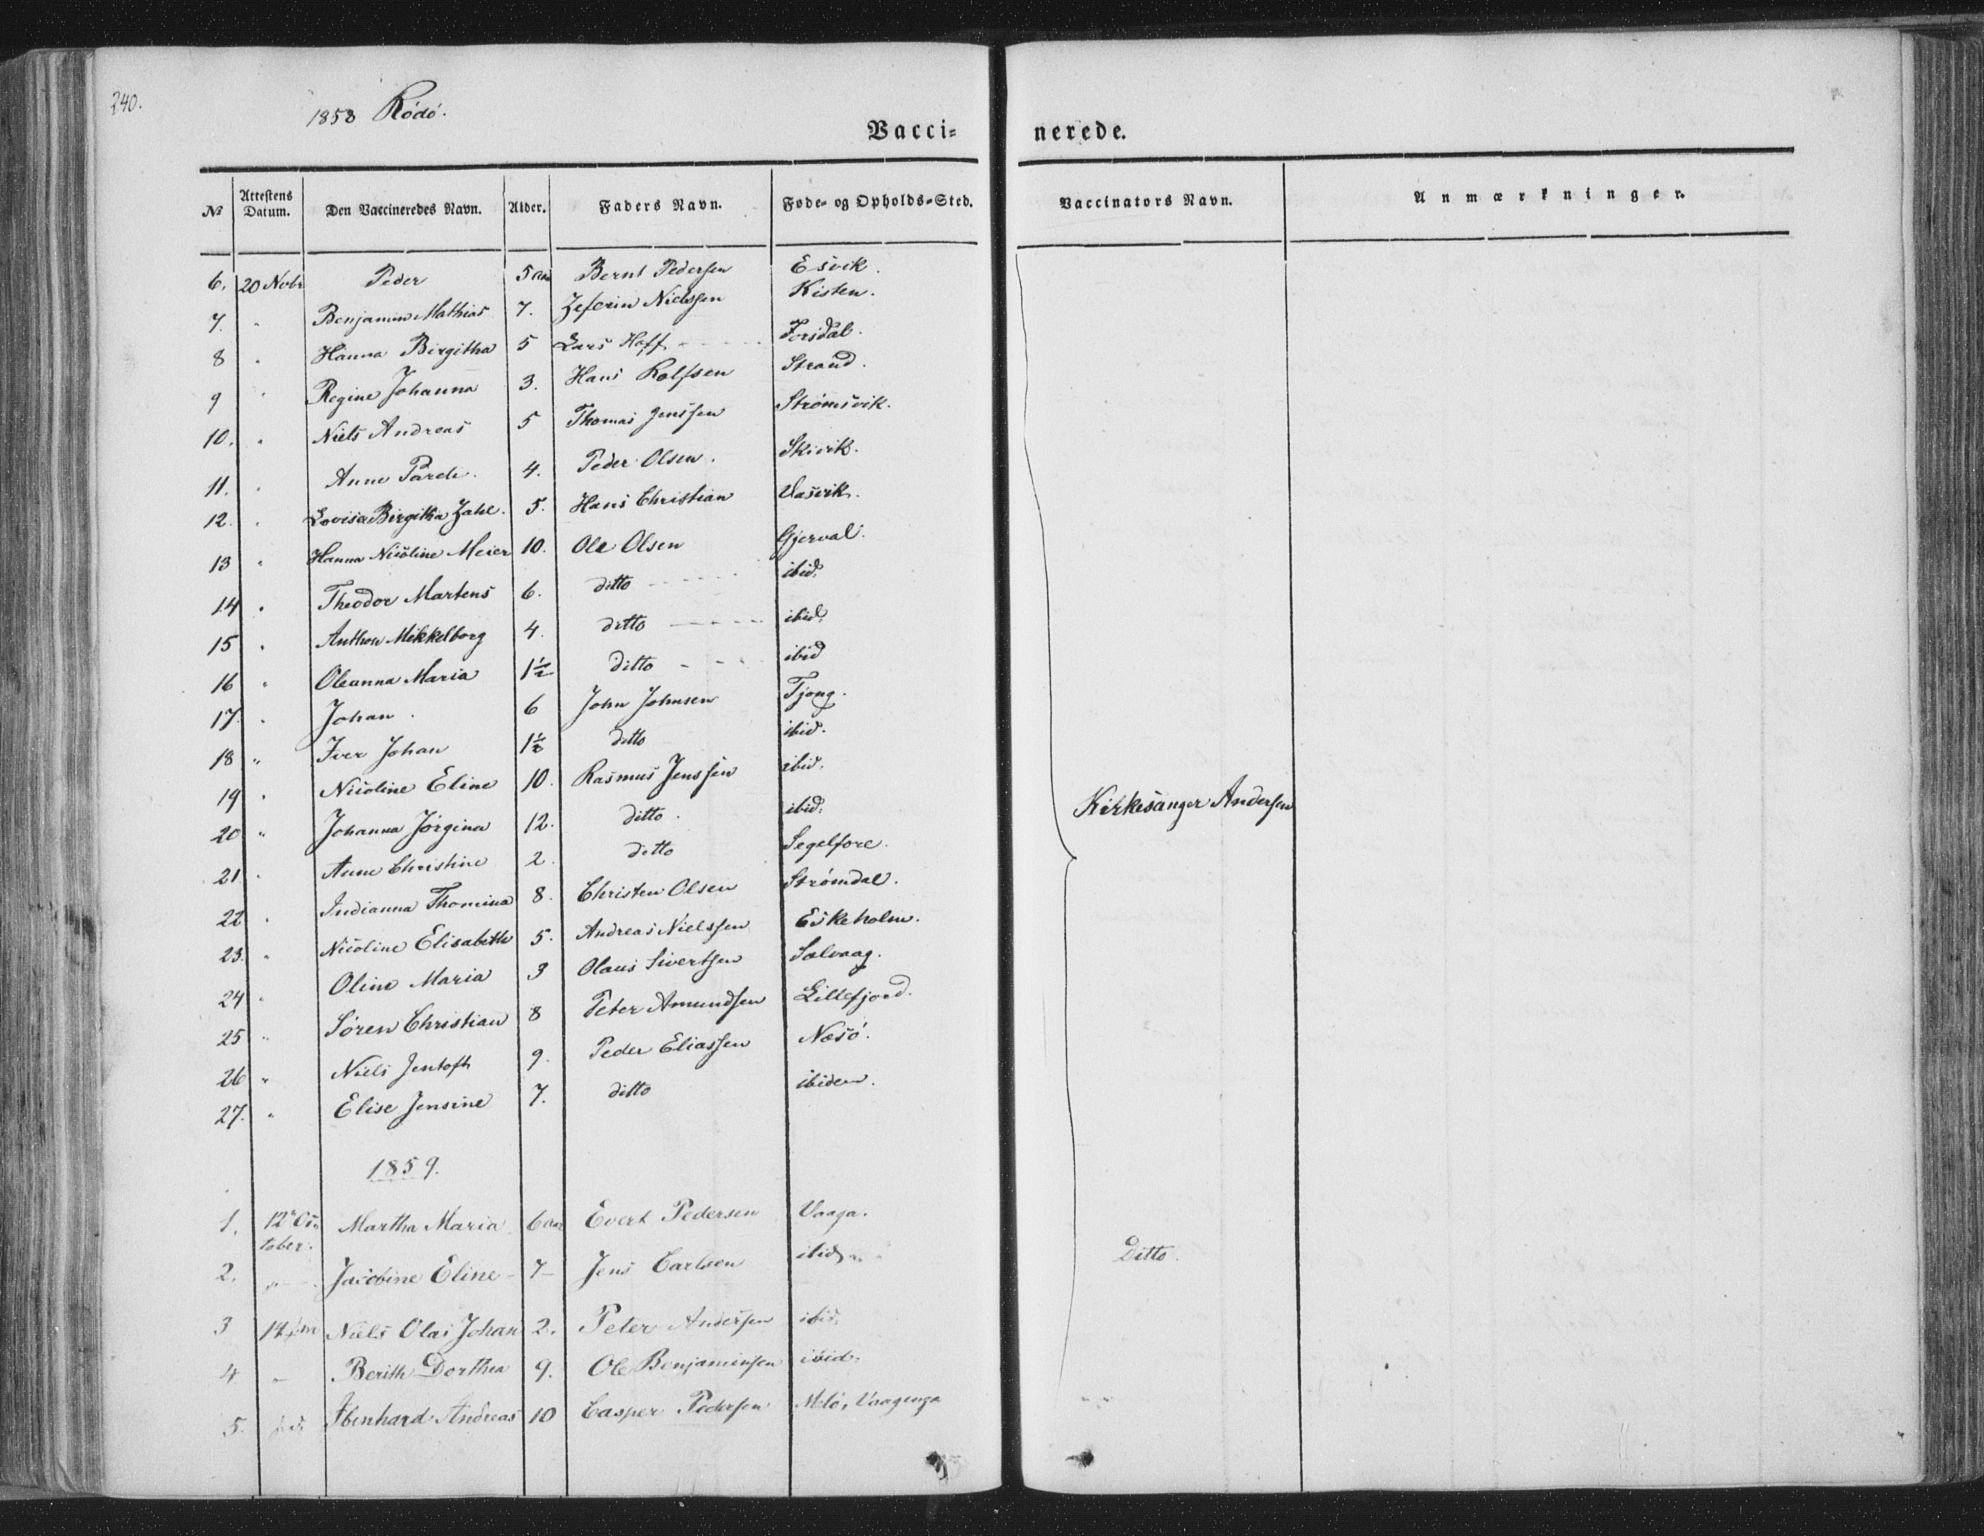 240.
1858 Rödö.
Vacci= nerede.
No Attestens Datum. Den Vaccineredes Navn. Alder. Faders Navn. Føde- og Opholds-Sted. Vaccinators Navn. Anmærkninger.
6. 20 Nobr Peder 5 aar Bernt Pedersen Esvik.
7. " Benjamin Mathias 7. Zeferin Nielssen Kisten.
8 " Hanna Birgitha 5 Lars Hoff Forsdal.
9 " Regine Johanna 3. Hans Rolfsen Strand.
10. " Niels Andreas 5 Thomas Jenssen Strømsvik.
11. " Anne 4. Peder Olsen. Skivik.
12. " Lovisa Birgitha Zahl. 5. Hans Christian Vasvik.
13 " Hanna Nicoline Meier 10. Ole Olsen Gjerval.
14 " Theodor Martens 6. ditto ibid.
15 " Anthon Mikkelborg 4. ditto ibid.
16 " Oleanna Maria 1½ ditto ibid
17. " Johan. 6 John Johnsen Tjong.
18 " Iver Johan 1½ ditto ibid.
19 " Nicoline Eline 10. Rasmus Jenssen ibid.
20 " Johanna Jørgina 12. ditto. ibid.
21 " Anne Christine 2. ditto Segelfore.
22 " Indianna Thomina 8. Christen Olsen Strømdal.
23. " Nicoline Elisabeth 5. Andreas Nielssen Eskeholm.
24 " Oline Maria 3 Olaus Sivertsen Selvaag.
25 " Søren Christian 8 Peter Amundsen Lillefjord.
26 " Niels Jentoft 9. Peder Eliassen Nesö.
27. " Elise Jensine 7. ditto ibidem.
Kirkesanger Andersen
1859.
1. 12te Oc-
tober. Martha Maria 6 aar Evert Pedersen Vaaga.
2. " Jacobine Eline 7 Jens Carlsen ibid
Ditto.
3 14 Niels Olai Johan 2. Peter Andersen ibid.
4 - Berith Dorthea 9. Ole Benjaminsen ibid.
5. Ibenhard Andreas 10 Casper Pedersen